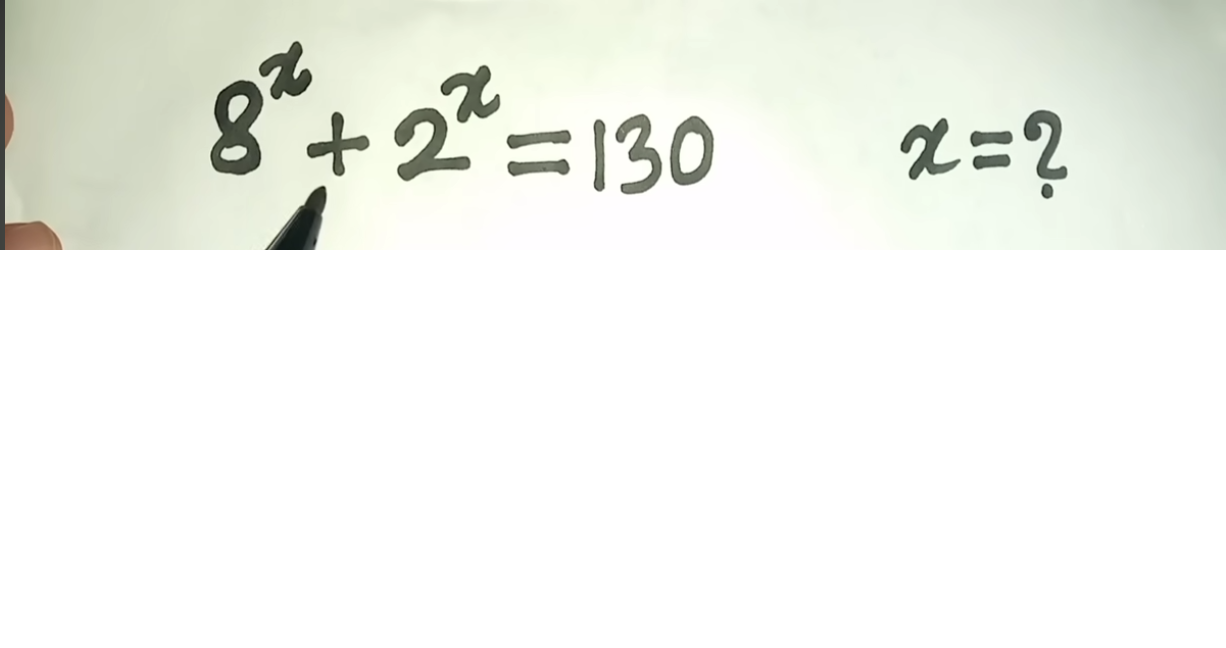 8ˣ + 2ˣ = 130 x = ?